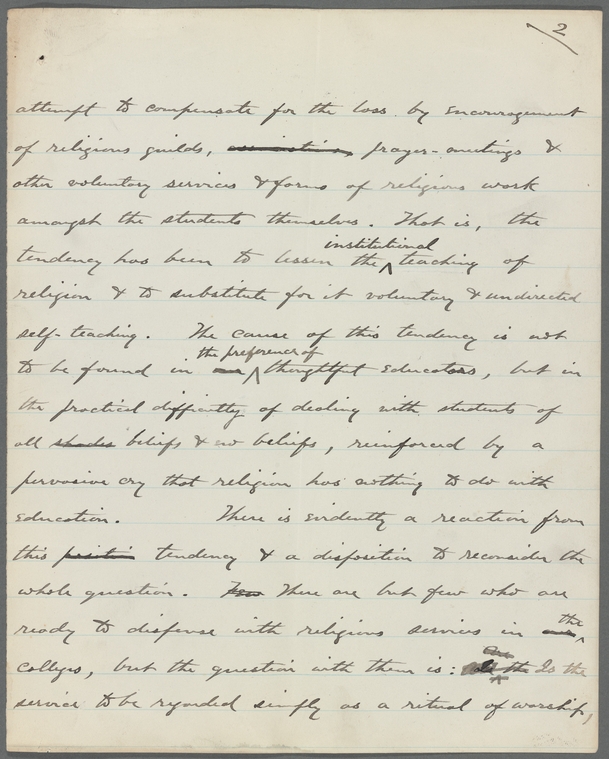 2
attempt to compensate for the loss by encouragement
of religious guilds, associations, prayer-meetings &
other voluntary services & forms of religious work
amongst the students themselves. That is, the
institutional
tendency has been to lessen the teaching of
religion & to substitute for it voluntary & undirected
self-teaching. The cause of this tendency is not
the preference of
to be found in thoughtful educators, but in
the practical difficulty of dealing with students of
all shades beliefs & no beliefs, reinforced by a
pervasive cry that religion has nothing to do with
education. There is evidently a reaction from
this position tendency & a disposition to reconsider the
whole question. There are but few who are
the
ready to dispense with religious services in
colleges, but the question with them is: Is the Is the
service to be regarded simply as a ritual of worship,